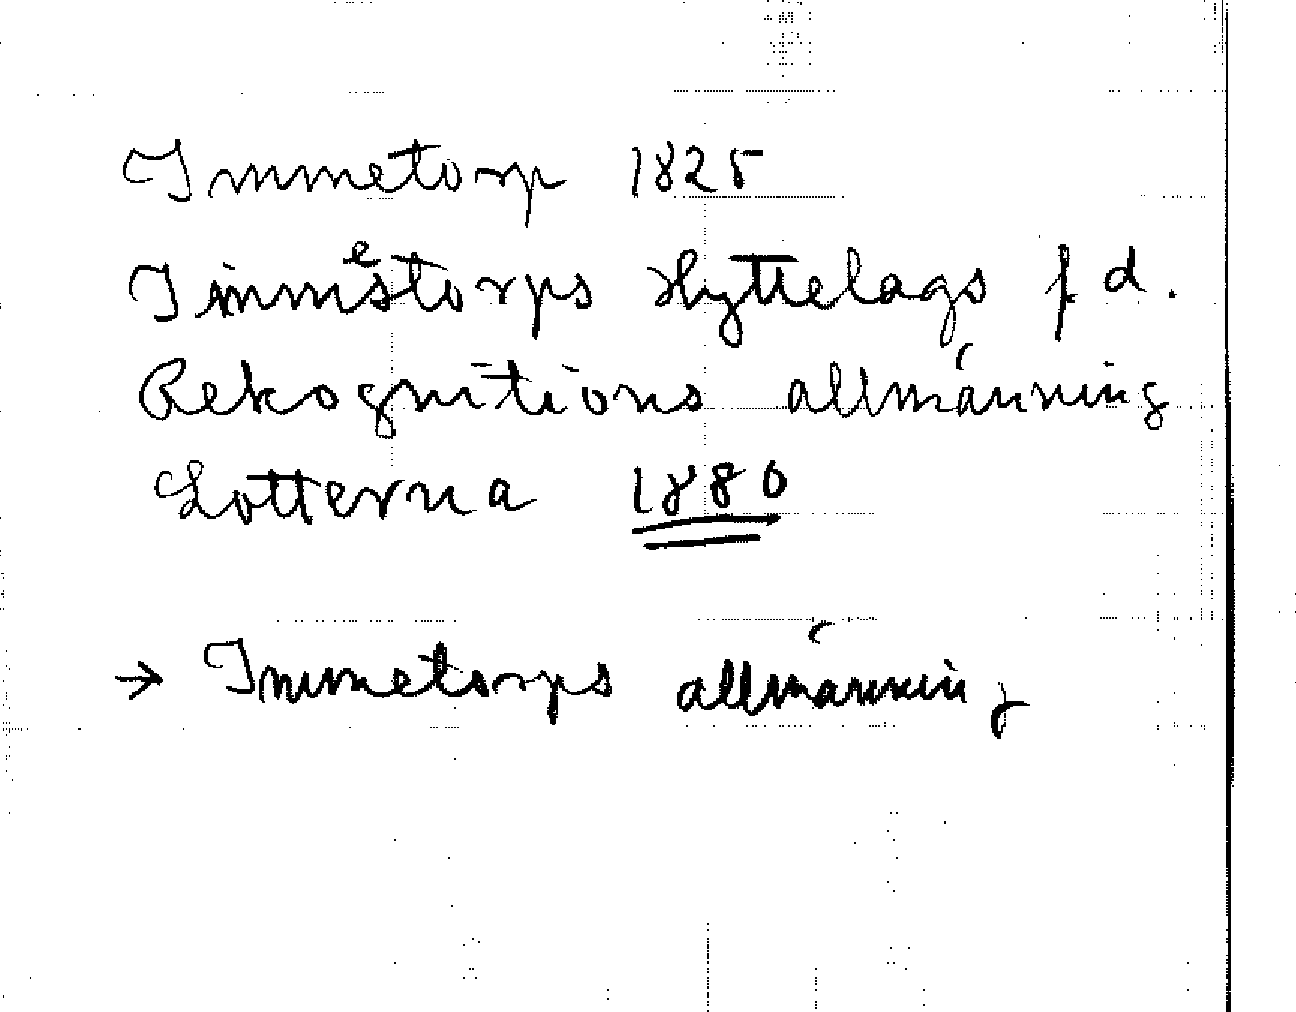 Immetorp 1825
Immestorps Hyttelags f d.
Rekognitions allmänning
Lotterna 1880
→ Immetorps allmänning